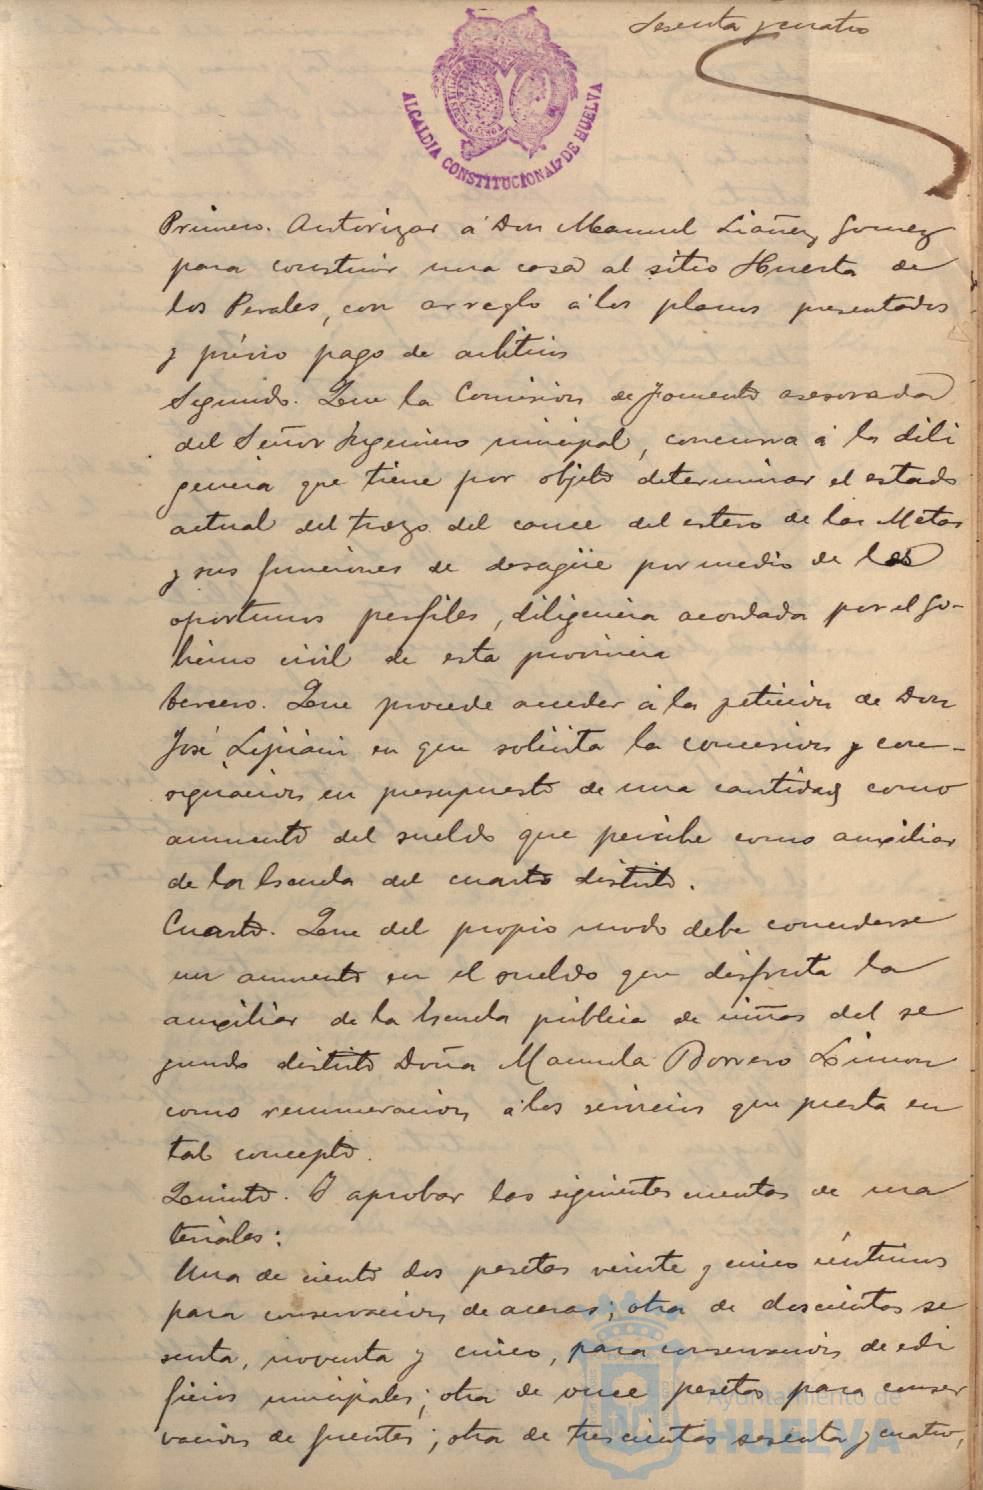 Sesenta y cuatro
ALCALDIA CONSTITUCIONAL DE HUELVA
Primero. Autorizar á Don Manuel Liañez Gomez
para construir una casa al sitio Huerta de
los Perales, con arreglo á los planos presentados
y prévio pago de arbitrios
Segundo. Que la Comision de Fomento asesorada
del Señor Ingeniero municipal, concurra á la dili
gencia que tiene por objeto determinar el estado
actual del trozo del cauce del estero de las Metas
y sus funciones de desagüe por medio de los
oportunos perfiles, diligencia acordada por el Go-
bierno civil de esta provincia
tercero. Que procede acceder á la peticion de Don
José en que solicita la concesion y con-
signacion en presupuesto de una cantidad como
aumento del sueldo que percibe como auxiliar
de la Escuela del cuarto distrito.
Cuarto. Que del propio modo debe concederse
un aumento en el sueldo que disfruta la
auxiliar de la Escuela pública de niñas del se
gundo distrito Doña Manuela Borrero Limon
como remuneracion á los servicios que presta en
tal concepto.
Quinto. Y aprobar las siguientes cuentas de ma
teriales:
Una de ciento dos pesetas veinte y cinco céntimos
para conservacion de aceras; otra de doscientas se
senta, noventa y cinco, para conservacion de edi
ficios municipales; otra de once pesetas para conser
vacion de fuentes; otra de trescientas sesenta y cuatro,
Ayuntamiento de
HUELVA